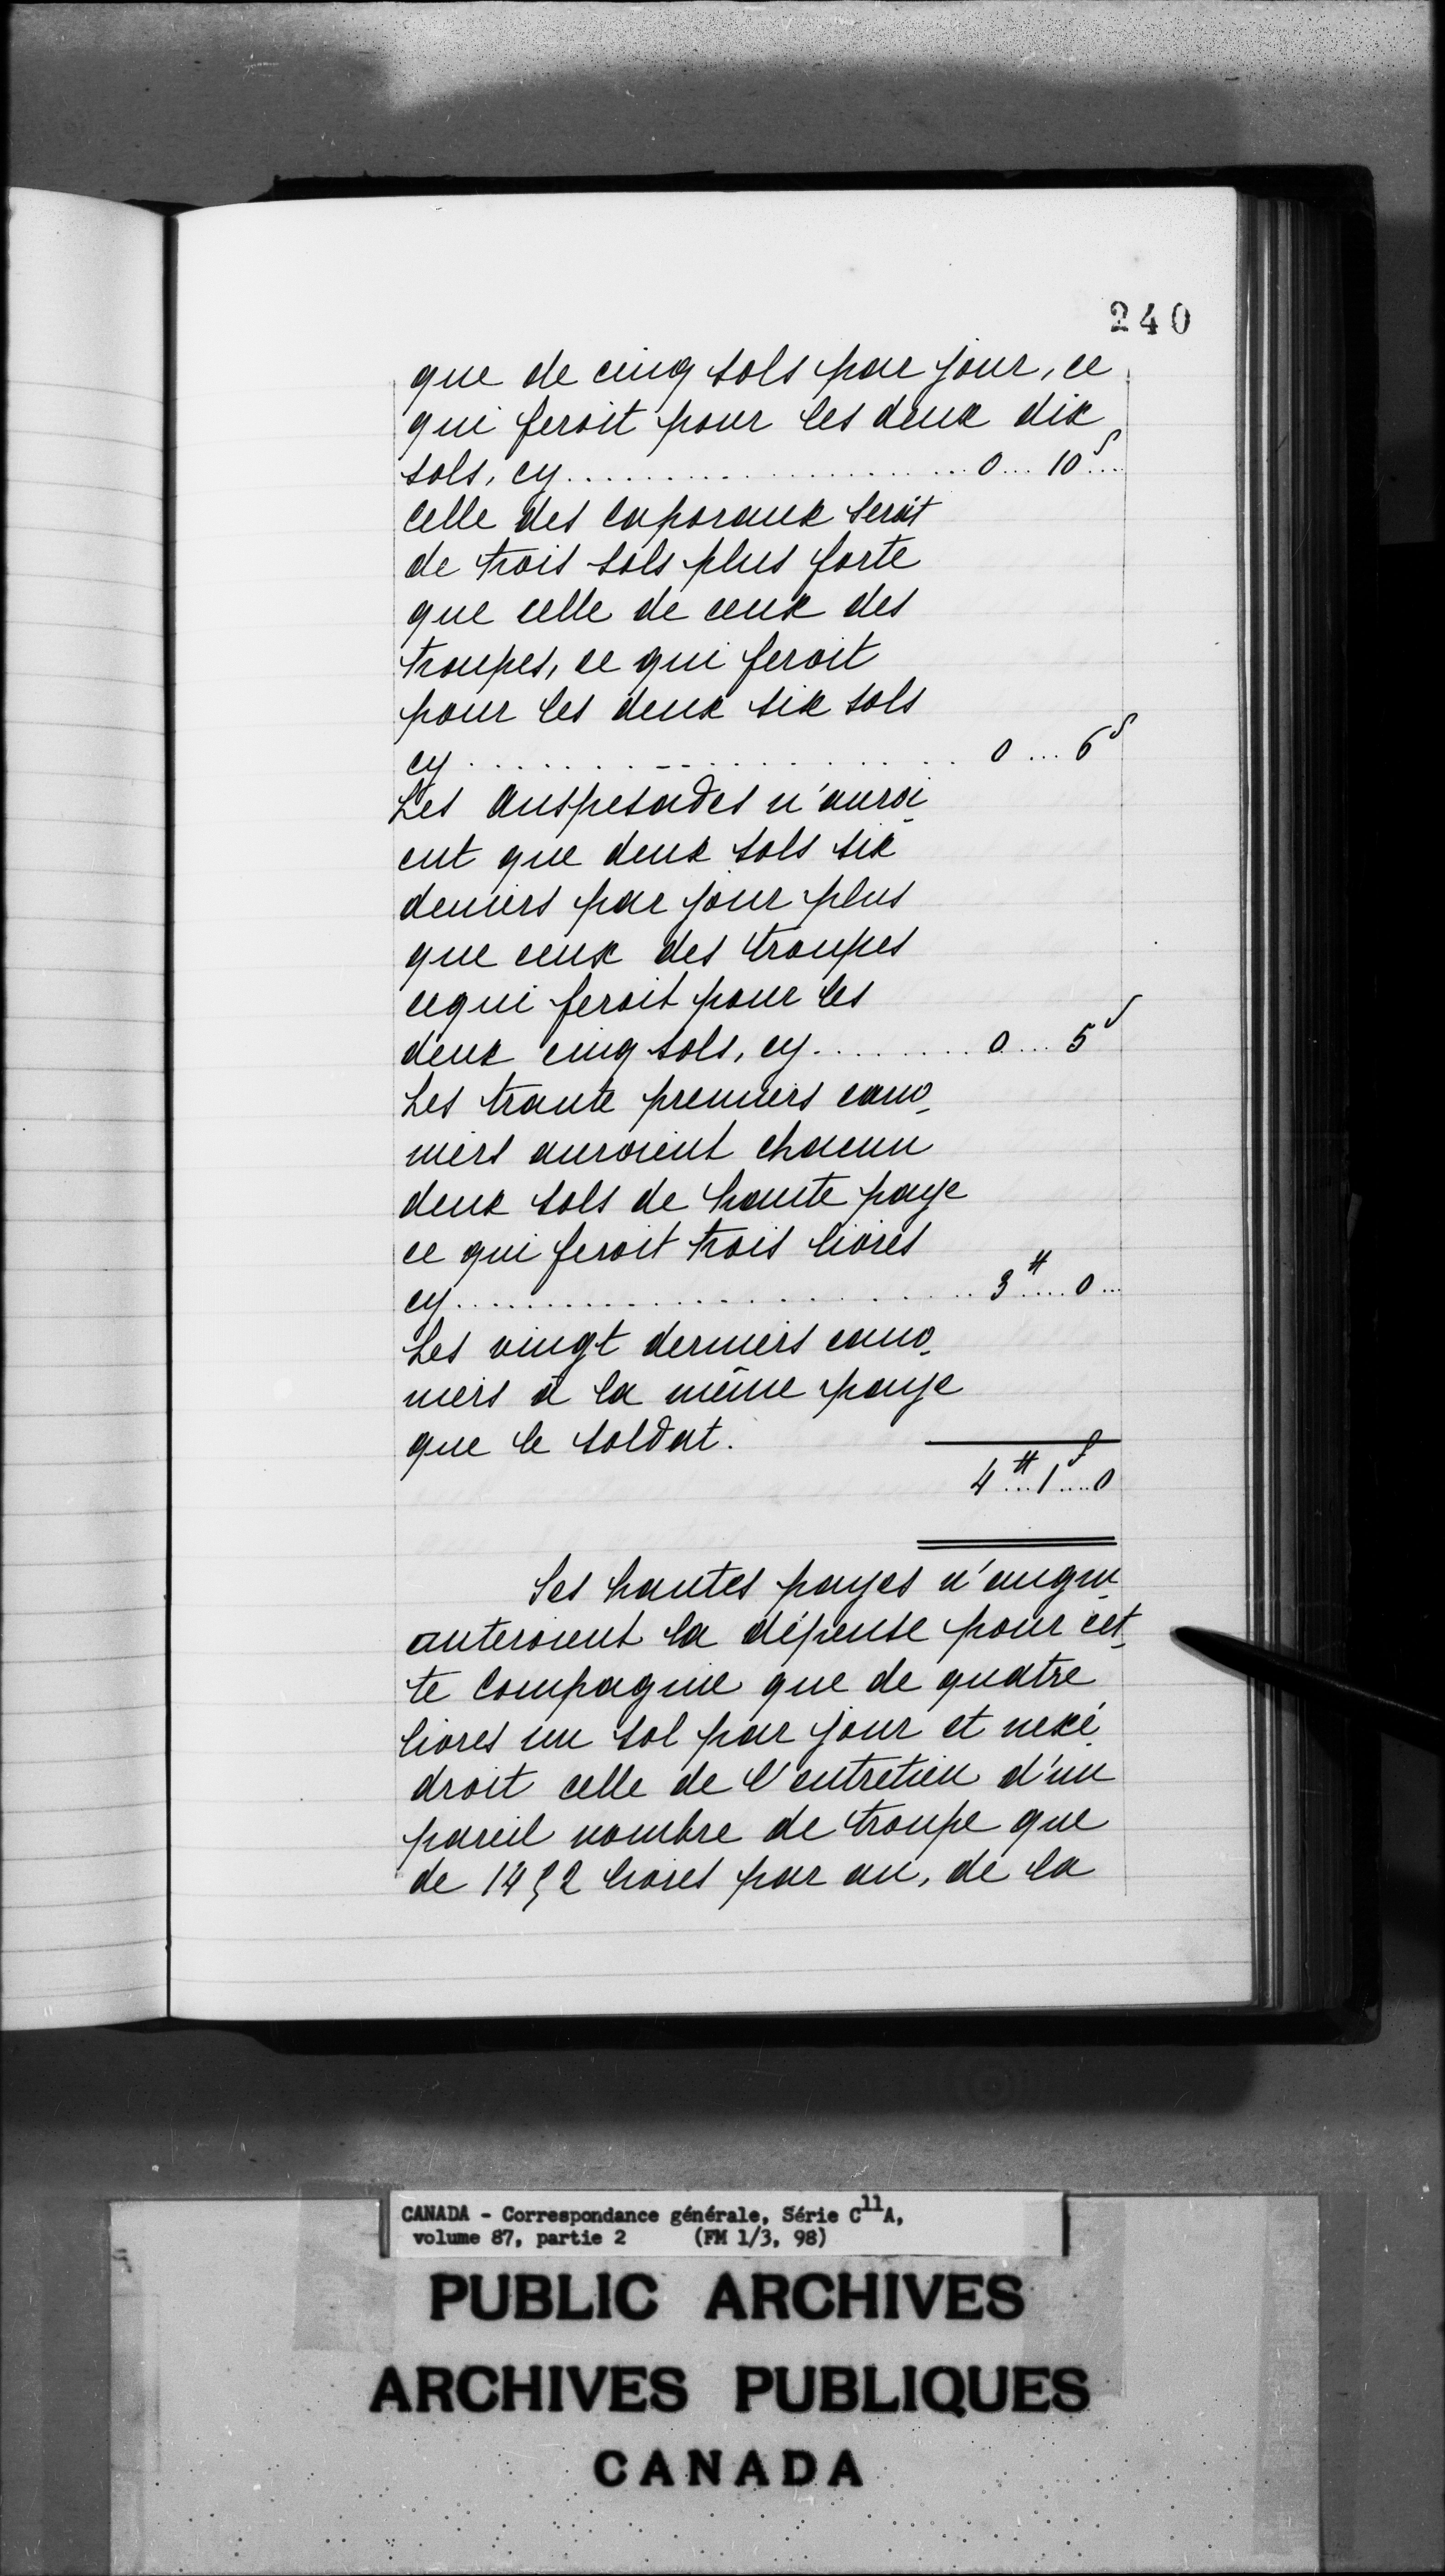 240
que de cinq sols par jour, ce
qui feroit pour les deux dix
sols, cy........................0...10ˢ...
Celle des caporaux seroit
de trois sols plus forte
que celle de ceux des
troupes, ce qui feroit
pour les deux six sols
cy........................0...6ˢ
Les Anspesades n'auroi_
ent que deux sols six
deniers par jour plus
que ceux des troupes
cequi feroit pour les
deux cinq sols, cy.........0...5ˢ
Les trante premiers cano_
niers auroient chacun
deux sols de haute paye
ce qui feroit trois livres
cy........................3^#....0...
Les vingt derniers cano_
niers à la même paye
que le soldat.
4^#...1ˢ....0
Ses hautes payes n'augm_
anteroient la dépense pour cet_
te Compagnie que de quatre
livres un sol par jour et nexé_
droit celle de l'entretien d'un
pareil nombre de troupe que
de 14 livres par an, de la
CANADA - Correspondance générale, Série C¹¹A,
volume 87, partie 2 (FM 1/3, 98)
PUBLIC ARCHIVES
ARCHIVES PUBLIQUES
CANADA